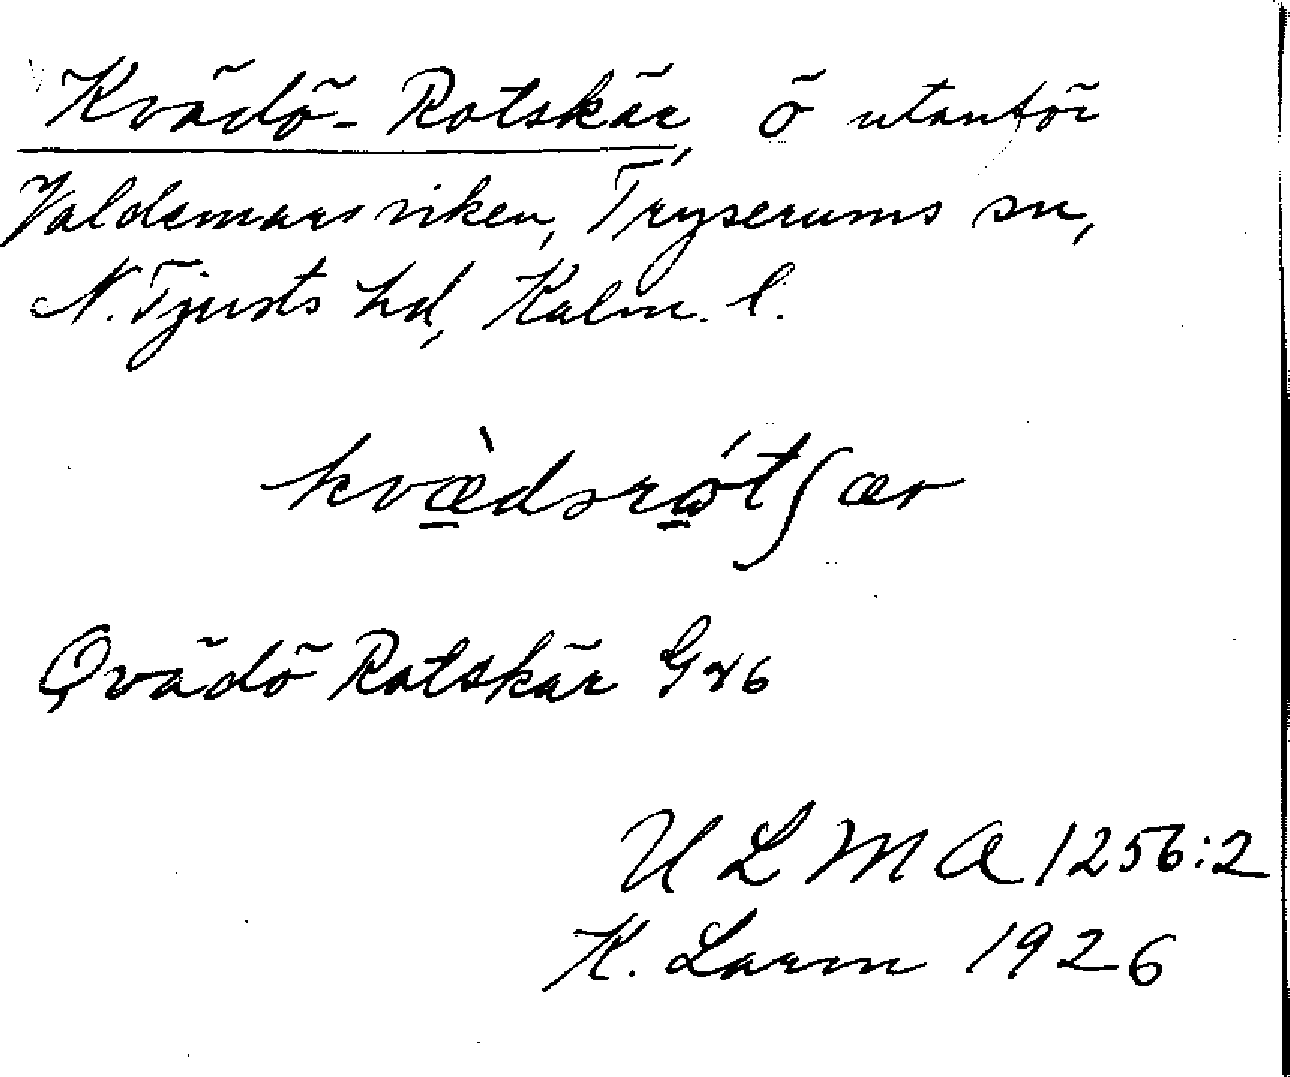 Kvädö-Rotskär, ö utanför
Valdemarsviken, Tryserums sn,
N. Tjusts hd, Kalm. l.
kvæ̀dsrǿtʃær
Qvädö Rotskär G46
ULMA 1256:2
K. Larm 1926